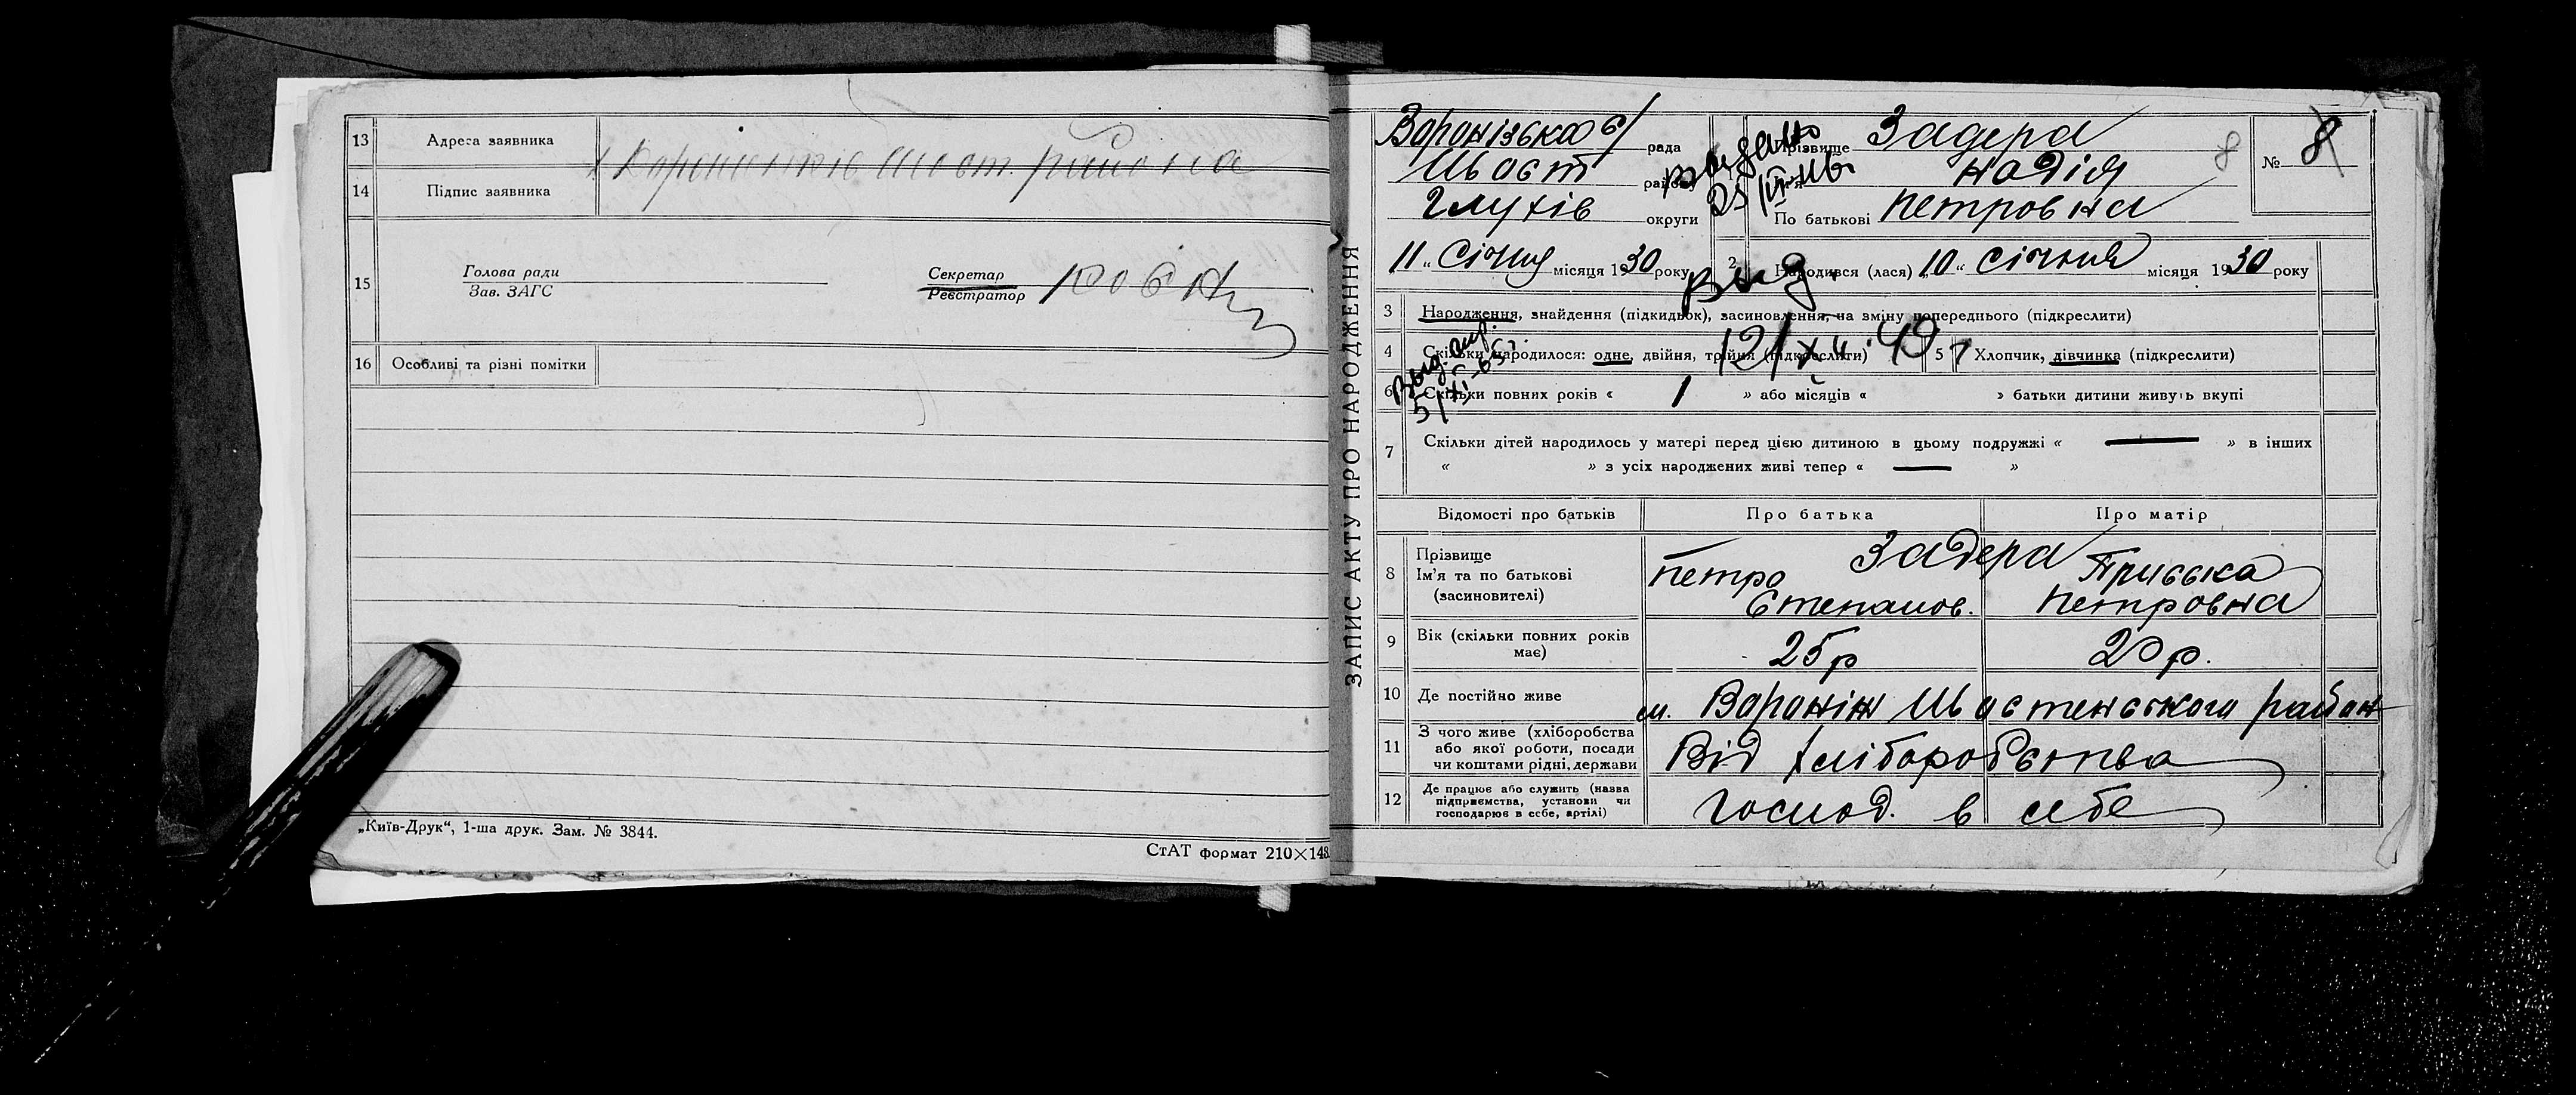 13 Адреса заявника
14 Підпис заявника
15 Голова ради
Зав. ЗАГС
Секретар
Реєстратор
16 Особливі та різні помітки
„Київ-Друк“, 1-ша друк. Зам. № 3844.
СтАТ формат 210×148
ЗАПИС АКТУ ПРО НАРОДЖЕННЯ
Воронізька с/ рада
Шост району
Глухів округи
11 „ Січня місяця 1930 року
Видано
Вид.
12/XII 40
5/XI-65г.
Прізвище Задера
Надія
По батькові Петровна
№ 8
8
2 Народився (лася) „10“ Січня місяця 1930 року
3 Народження, знайдення (підкидьок), засиновлення, на зміну попереднього (підкреслити)
4 Скільки народилося: одне, двійня, трійня (підкреслити) 5 Хлопчик, дівчинка (підкреслити)
6 Скільки повних років « 1 » або місяців « » батьки дитини живуть вкупі
7 Скільки дітей народилось у матері перед цією дитиною в цьому подружжі « — » в інших
« » з усіх народжених живі тепер « — »
Відомості про батьків Про батька Про матір
8 Прізвище
Ім'я та по батькові
(засиновителі)
Задера
Петро Степанов.
Приська Петровна
9 Вік (скільки повних років має) 25р 20р.
10 Де постійно живе м. Вороніж Шостенського район
11 З чого живе (хліборобства
або якої роботи, посади
чи коштами рідні, держави
Від хліборобства
12 Де працює або служить (назва
підприємства, установи чи
господарює в себе, артілі)
Господ. в себе